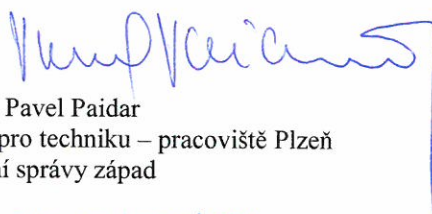 Pavel Paidar
pro techniku – pracoviště Plzeň
í správy západ